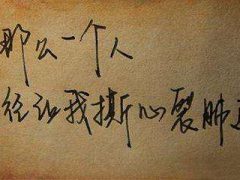 那么一个人
经让我撕心裂肺